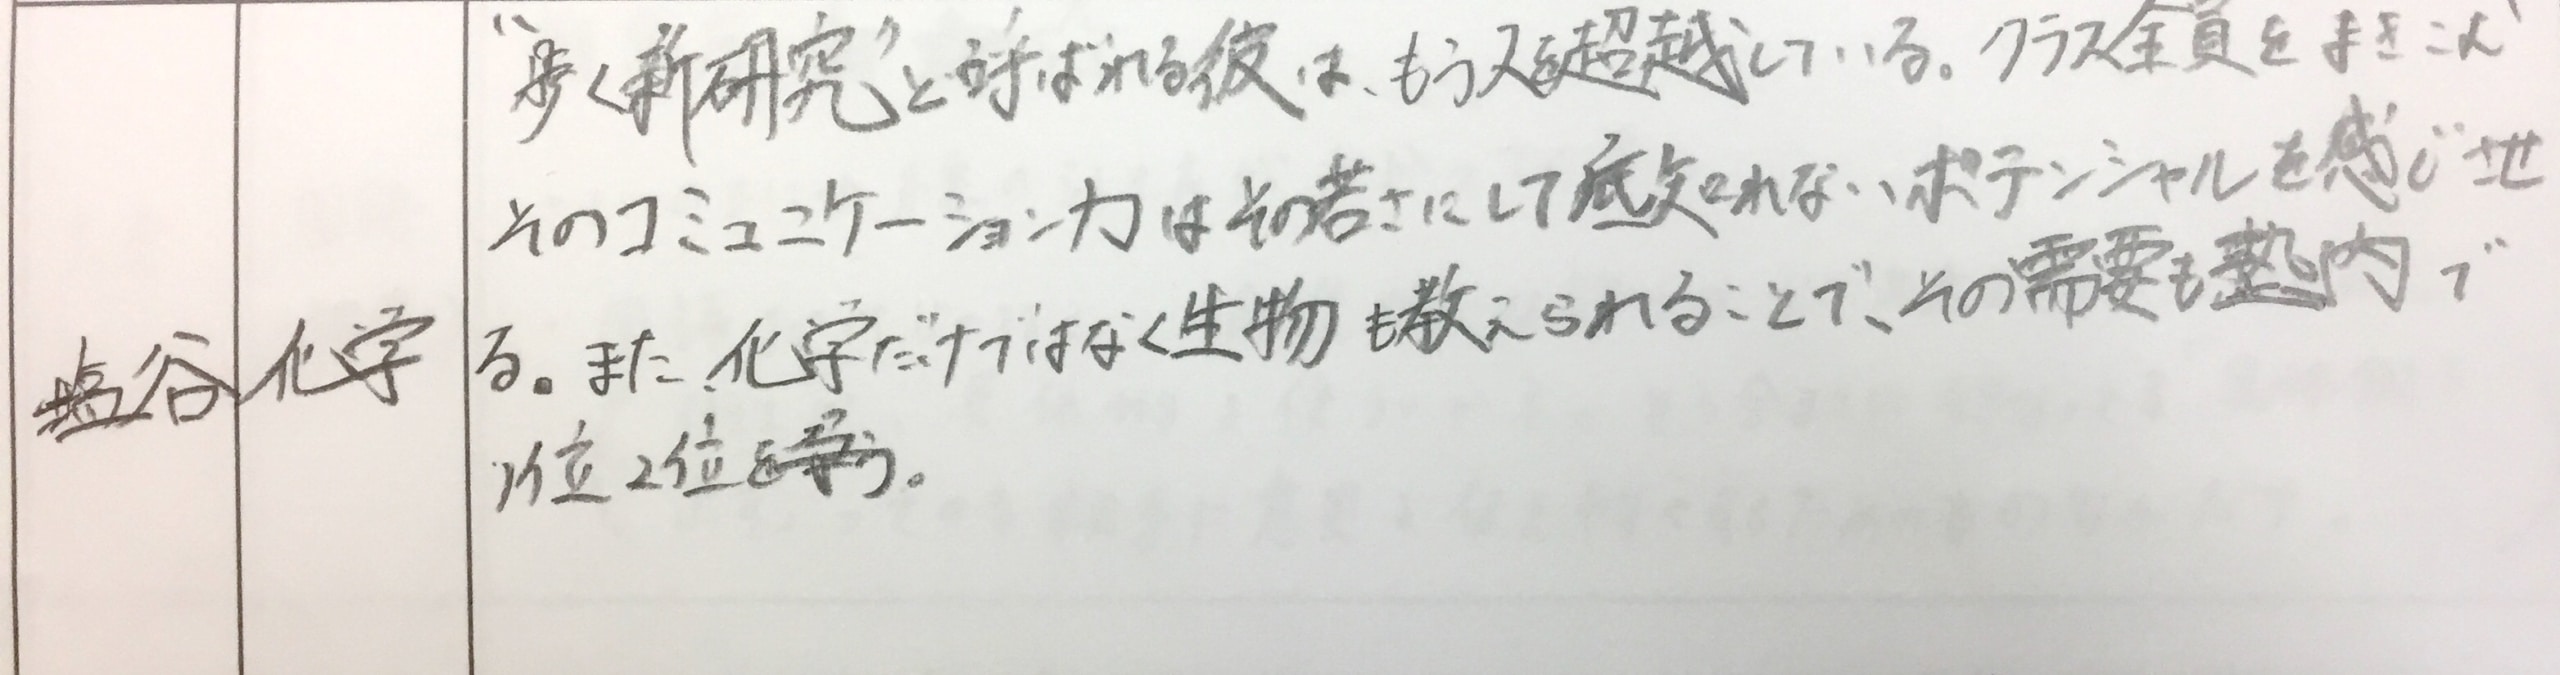 "歩く新研究"と呼ばれる彼は、もう人を超越している。クラス全員をまきこんだ
そのコミュニケーション力はその若さにして底知れないポテンシャルを感じさせ
る。また、化学だけではなく生物も教えられることで、その需要も塾内で
1位2位を争う。
塩谷
化学